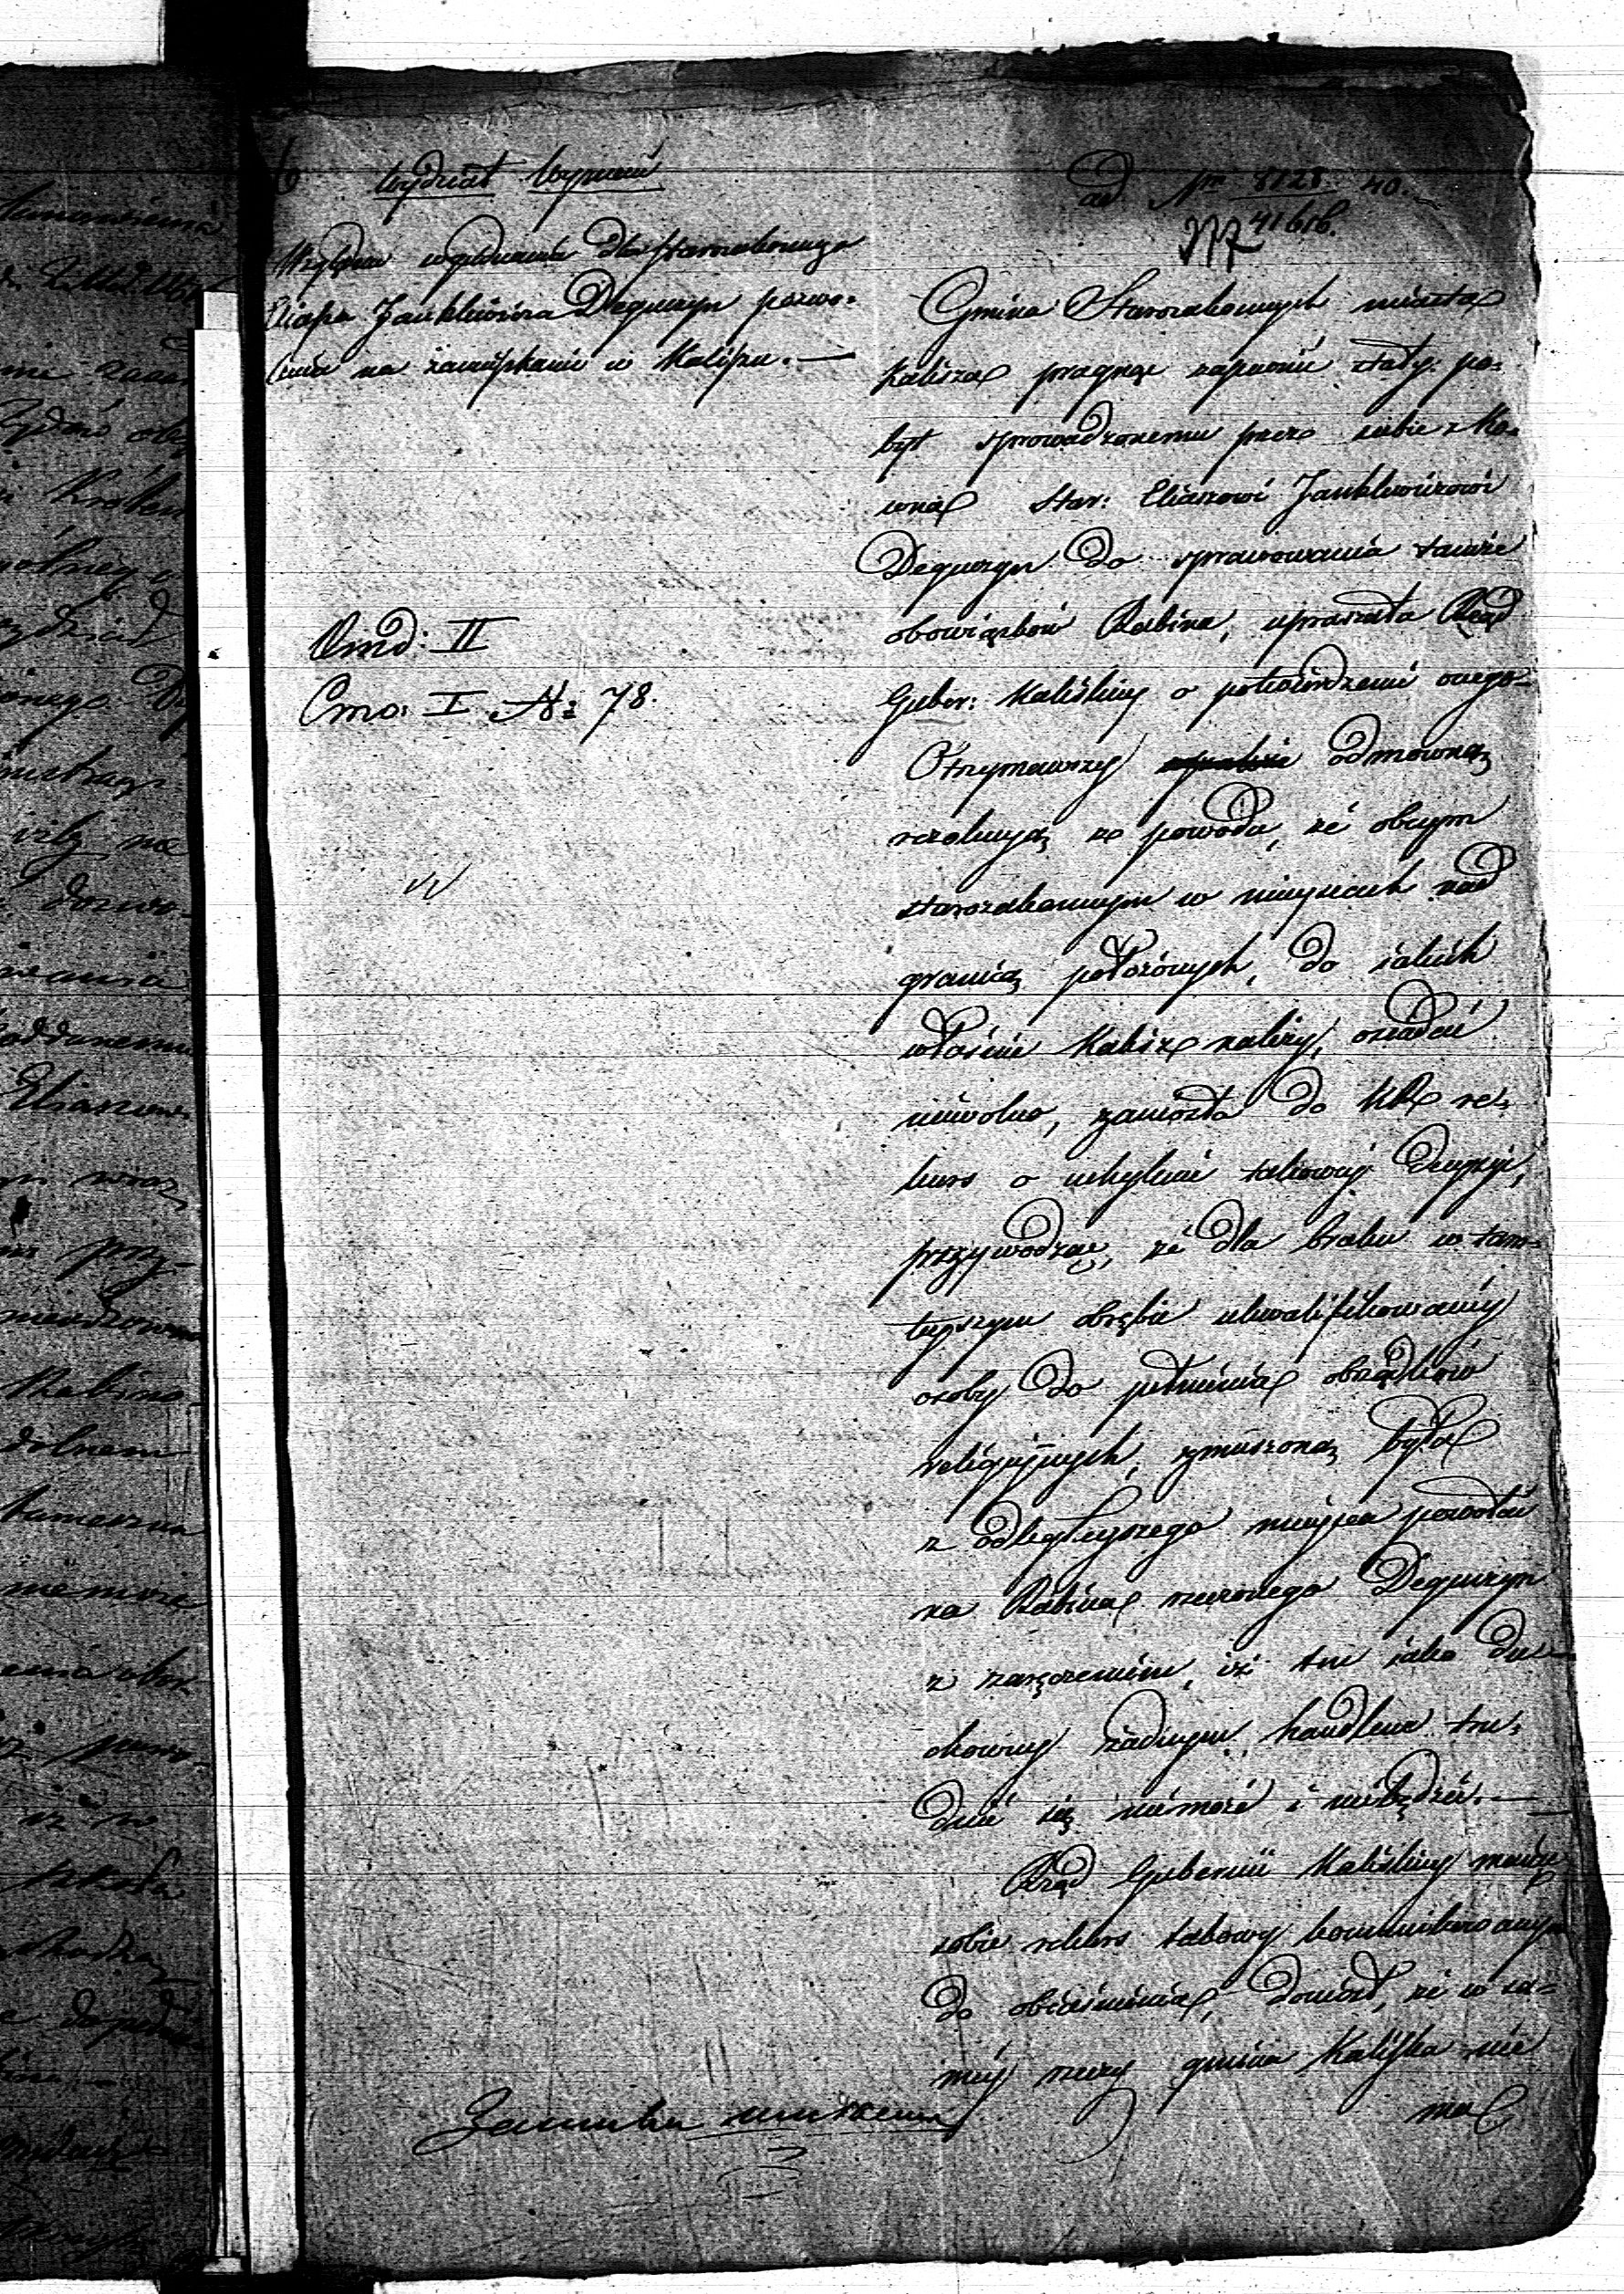 Wydział Wyznań
ad Nm 8128 40.
41616.
Względem wyjednania dla Starozakonnego
Eliasza Janklewicza Deguczyn pozwo-
lenia na zamieszkanie w Kaliszu. —
Omd: II
Cmo: I N: 78.
Gmina Starozakonnych miasta
Kalisza pragnąc zapewnić stały po-
byt sprowadzonemu przez siebie z Ko-
wna Star: Eliaszowi Janklewiczowi
Deguczyn do sprawowania tamże
obowiązków Rabina, upraszała Rząd
Guber: Kaliskiey o potwierdzenie onego-
Otrzymawszy odmowną
rezolucyą z powodu, że obcym
starozakonnym w mieyscach nad
granicą położonych, do iakich
właśnie Kalisz należy, osiadać
niewolno, zaniosła do KR re-
kurs o uchylenie takowey decyzyi,
przywodząc, że dla braku w tam-
teyszym obrębie ukwalifikowaney
osoby do pełnienia obrządków
religiynych, zmuszoną była
z odleglejszego mieysca powołać
na Rabina rzeczonego Deguczyn
z zaręczeniem, iż ten iako du-
chowny żadnym handlem tru-
dnić się niemoże i niebędzie. —
Rząd Gubernii Kaliskiey maiąc
sobie rekurs takowy kommunikowanym
do obiaśnienia, doniósł, że w sa-
mey rzeczy gmina Kaliska nie
ma